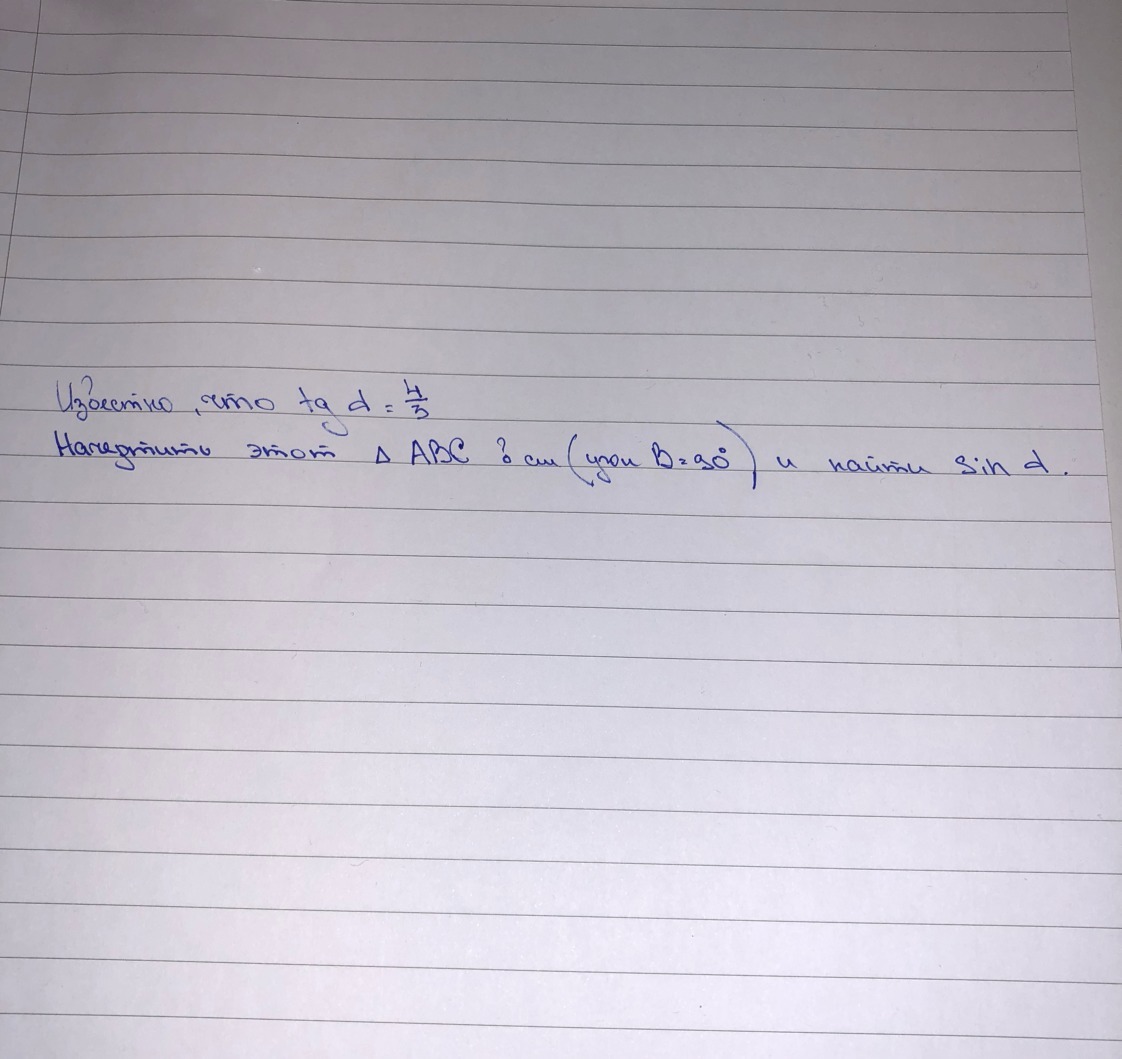 Известно, что tg α = 4/3
Начертить этот Δ ABC в см (угол B = 90°) и найти sin α.